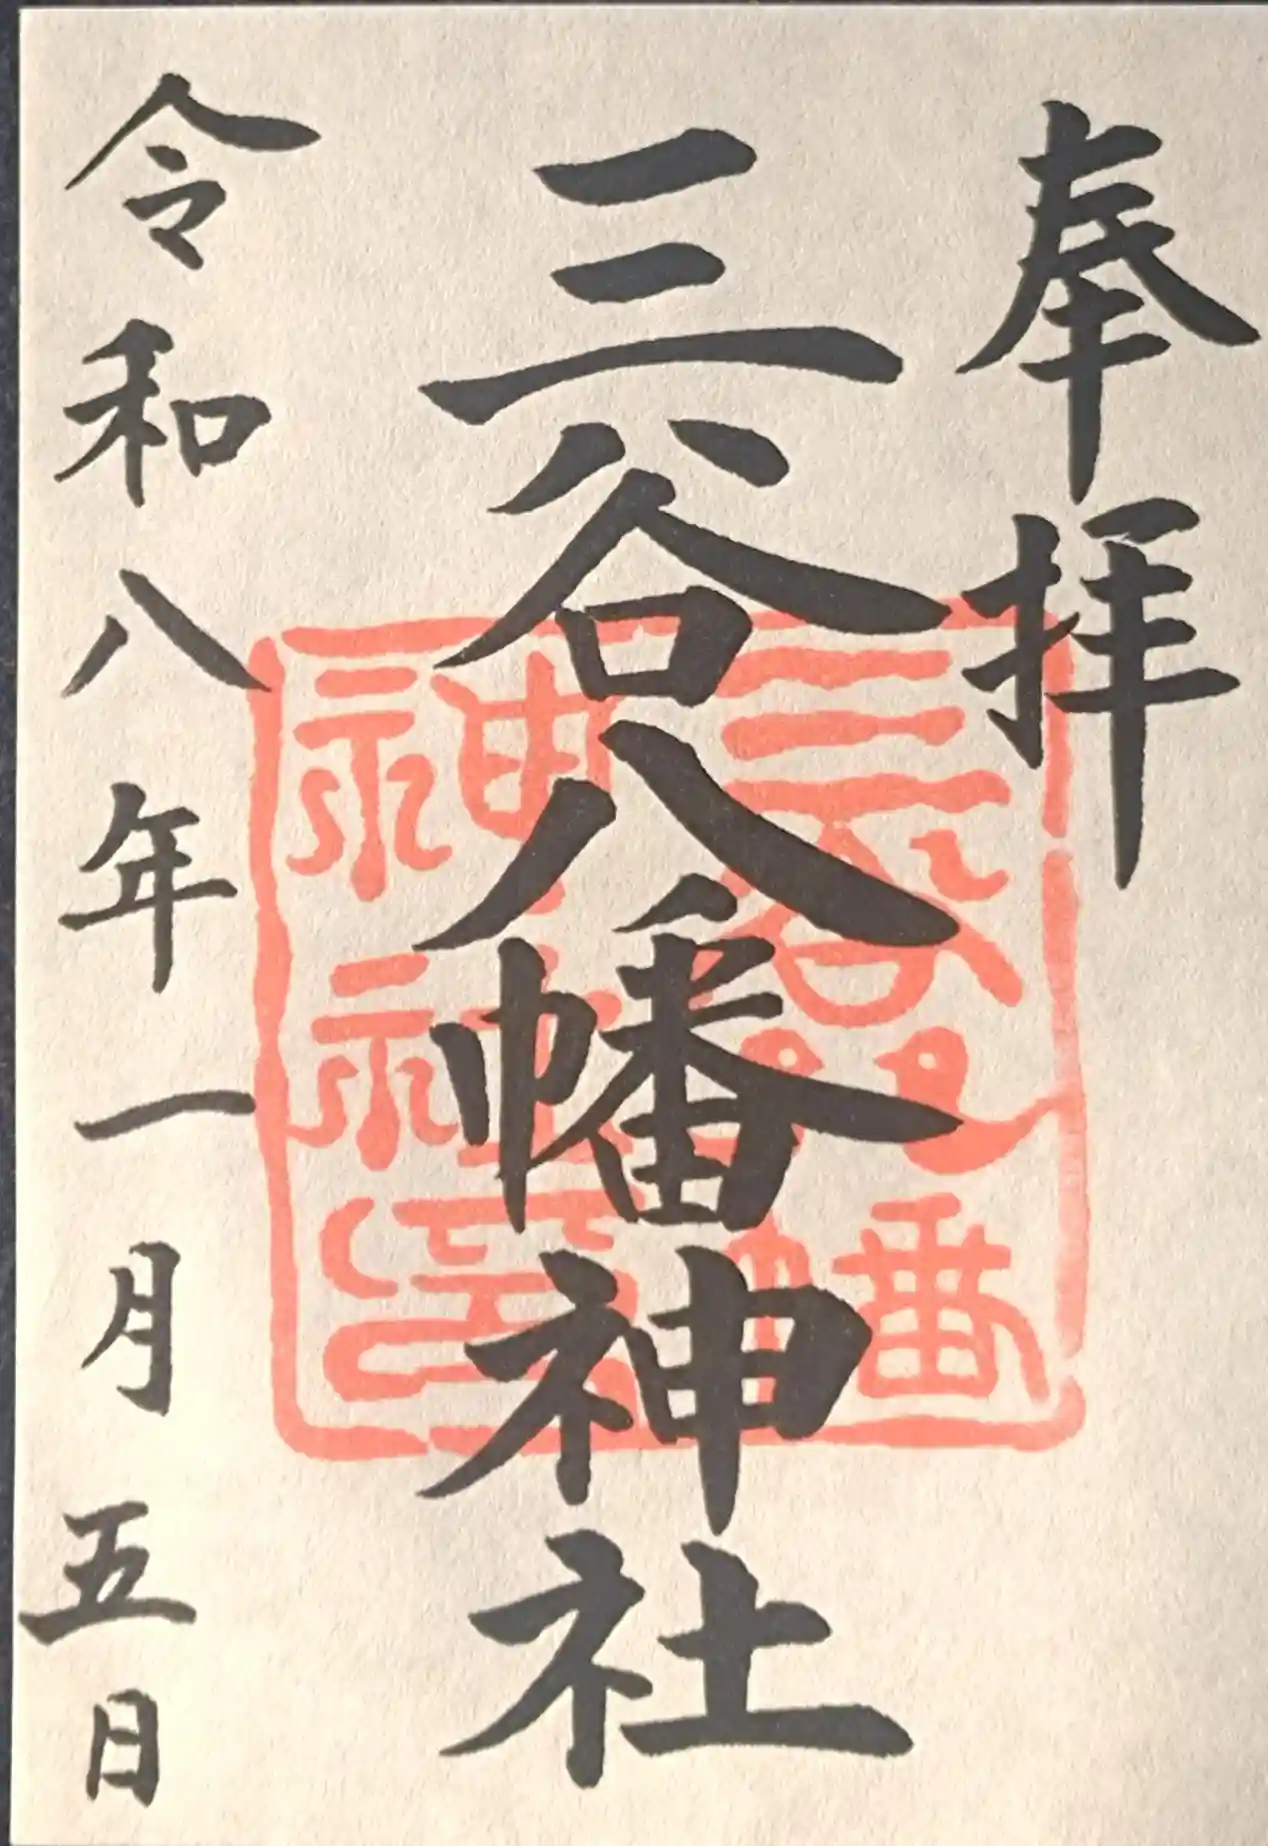 奉拝
三谷八幡神社
令和八年一月五日
三谷八幡
神社印